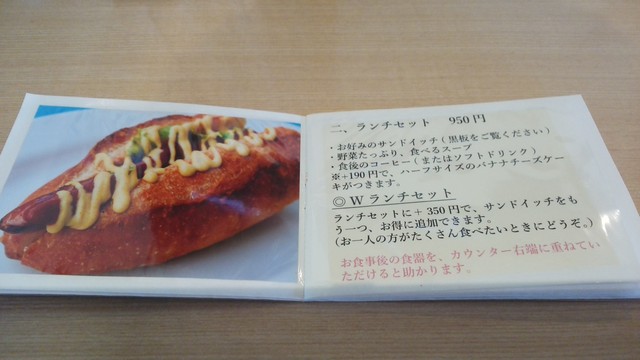 二、ランチセット 950円
・お好みのサンドイッチ(黒板をご覧ください)
・野菜たっぷり、食べるスープ
・食後のコーヒー(またはソフトドリンク)
※+190円で、ハーフサイズのバナナチーズケー
キがつきます。
◎Wランチセット
ランチセットに+350円で、サンドイッチをも
う一つ、お得に追加できます。
(お一人の方がたくさん食べたいときにどうぞ。)
お食事後の食器を、カウンター右端に重ねてい
ただけると助かります。